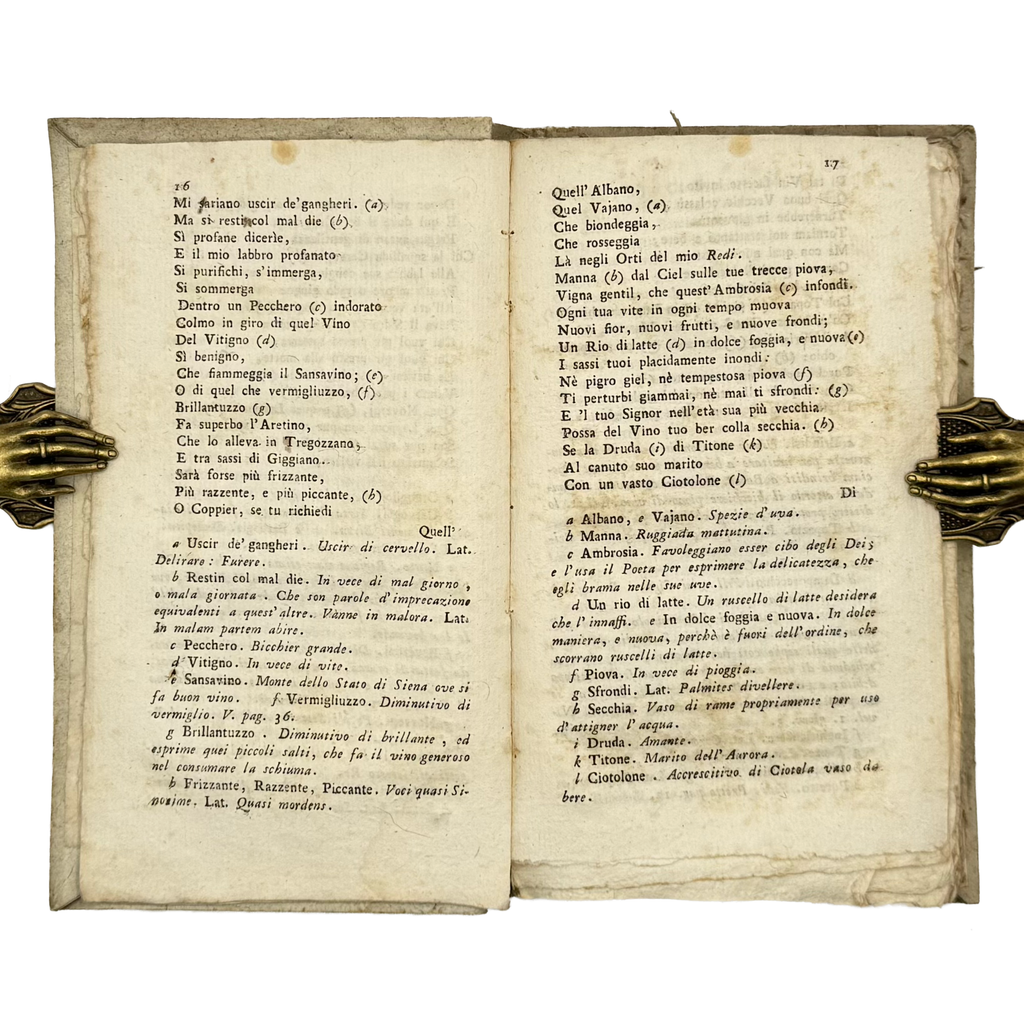 16
Mi fariano uscir de'gangheri. (a)
Ma si restin col mal die (b)
Sì profane dicerìe,
E il mio labbro profanato
Si purifichi, s'immerga,
Si sommerga
Dentro un Pecchero (c) indorato
Colmo in giro di quel Vino
Del Vitigno (d)
Sì benigno,
Che fiammeggia il Sansavino; (e)
O di quel che vermigliuzzo, (f)
Brillantuzzo (g)
Fa superbo l'Aretino,
Che lo alleva in Tregozzano,
E tra sassi di Giggiano.
Sarà forse più frizzante,
Più razzente, e più piccante, (h)
O Coppier, se tu richiedi
Quell'
a Uscir de' gangheri. Uscir di cervello. Lat.
Delirare: Furere.
b Restin col mal die. In vece di mal giorno,
o mala giornata. Che son parole d'imprecazione
equivalenti a quest'altre. Vanne in malora. Lat.
In malam partem abire.
c Pecchero. Bicchier grande.
d Vitigno. In vece di vite.
e Sansavino. Monte dello Stato di Siena ove si
fa buon vino. f Vermigliuzzo. Diminutivo di
vermiglio. V. pag. 36.
g Brillantuzzo. Diminutivo di brillante, ed
esprime quei piccoli salti, che fa il vino generoso
nel consumare la schiuma.
h Frizzante, Razzente, Piccante. Voci quasi Si-
nonime. Lat. Quasi mordens.
17
Quell'Albano,
Quel Vajano, (a)
Che biondeggia,
Che rosseggia
Là negli Orti del mio Redi.
Manna (b) dal Ciel sulle tue trecce piova,
Vigna gentil, che quest'Ambrosia (c) infondi.
Ogni tua vite in ogni tempo muova
Nuovi fior, nuovi frutti, e nuove frondi;
Un Rio di latte (d) in dolce foggia, e nuova (e)
I sassi tuoi placidamente inondi:
Nè pigro giel, nè tempestosa piova (f)
Ti perturbi giammai, nè mai ti sfrondi: (g)
E 'l tuo Signor nell'età sua più vecchia
Possa del Vino tuo ber colla secchia. (h)
Se la Druda (i) di Titone (k)
Al canuto suo marito
Con un vasto Ciotolone (l)
Di
a Albano, e Vajano. Spezie d'uva.
b Manna. Ruggiada mattutina.
c Ambrosia. Favoleggiano esser cibo degli Dei;
e l'usa il Poeta per esprimere la delicatezza, che
egli brama nelle sue uve.
d Un rio di latte. Un ruscello di latte desidera
che l'innaffi. e In dolce foggia e nuova. In dolce
maniera, e nuova, perchè è fuori dell'ordine, che
scorrano ruscelli di latte.
f Piova. In vece di pioggia.
g Sfrondi. Lat. Palmites divellere.
h Secchia. Vaso di rame propriamente per uso
d'attigner l'acqua.
i Druda. Amante.
k Titone. Marito dell'Aurora.
l Ciotolone. Accrescitivo di Ciotola vaso da
bere.